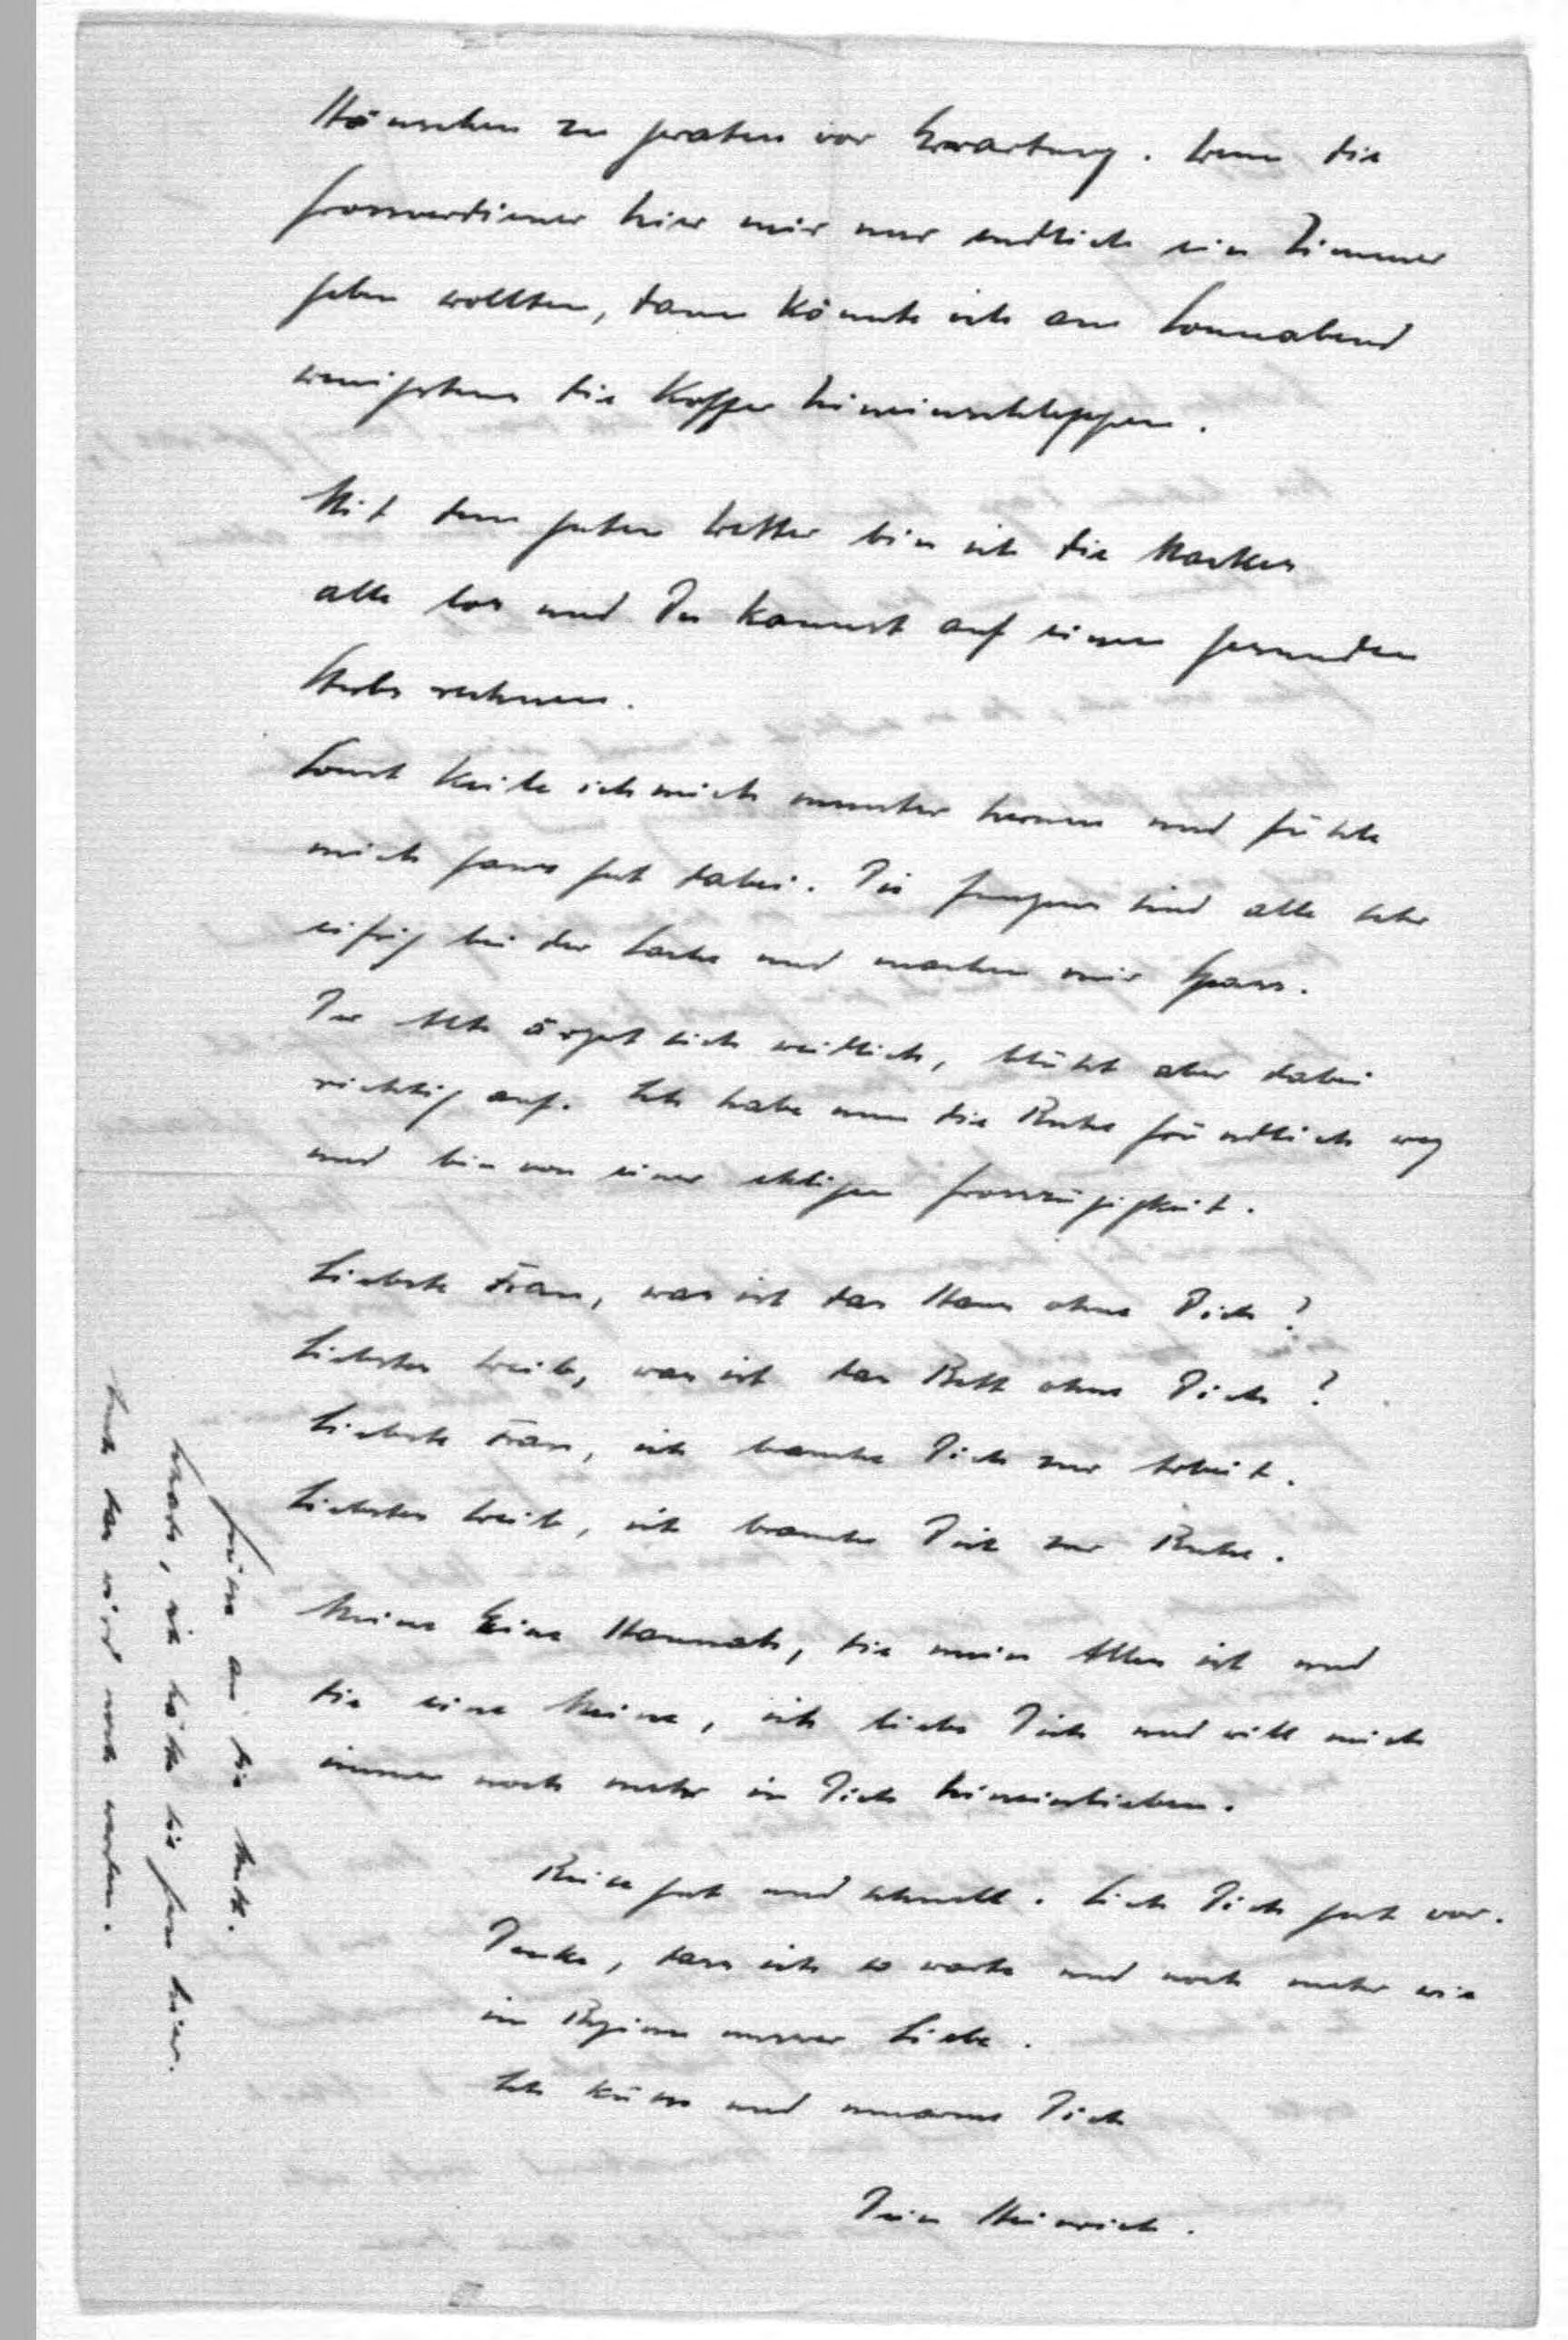 Häuschen zu geraten vor Erwartung. Wenn die
Grossverdiener hier mir nur endlich ein Zimmer
geben wollten, dann könnte ich am Sonnabend
wenigstens die Koffer hineinschleppen.
Mit dem guten Wetter bin ich die
alle los und Du kannst auf einen gesunden
rechnen.
Sonst keile ich mich munter herum und fühle
mich ganz gut dabei. Die Jungens sind alle sehr
eifrig bei der Sache und machen mir Spass.
Der Alte ärgert sich weidlich, blüht aber dabei
richtig auf. Ich habe nun die Ruhe gründlich weg
und bin von einer ekligen Grosszügigkeit.
Liebste Frau, was ist das Haus ohne Dich?
Liebstes Weib, was ist das Bett ohne Dich?
Liebste Frau, ich brauche Dich zur Arbeit.
Liebstes Weib, ich brauche Dich zur Ruhe.
Meine Eine Hannah, die mein Alles ist und
die eine Meine, ich liebe Dich und will mich
immer noch mehr in Dich hineinlieben.
Reise gut und schnell. Sieh Dich gut vor.
Denke, dass ich so warte und noch mehr wie
im Beginn unserer Liebe.
Ich küsse und umarme Dich
Dein Heinrich.
Grüsse an die Mutt.
Schade, ich hätte sie gern hier.
das wird noch werden.